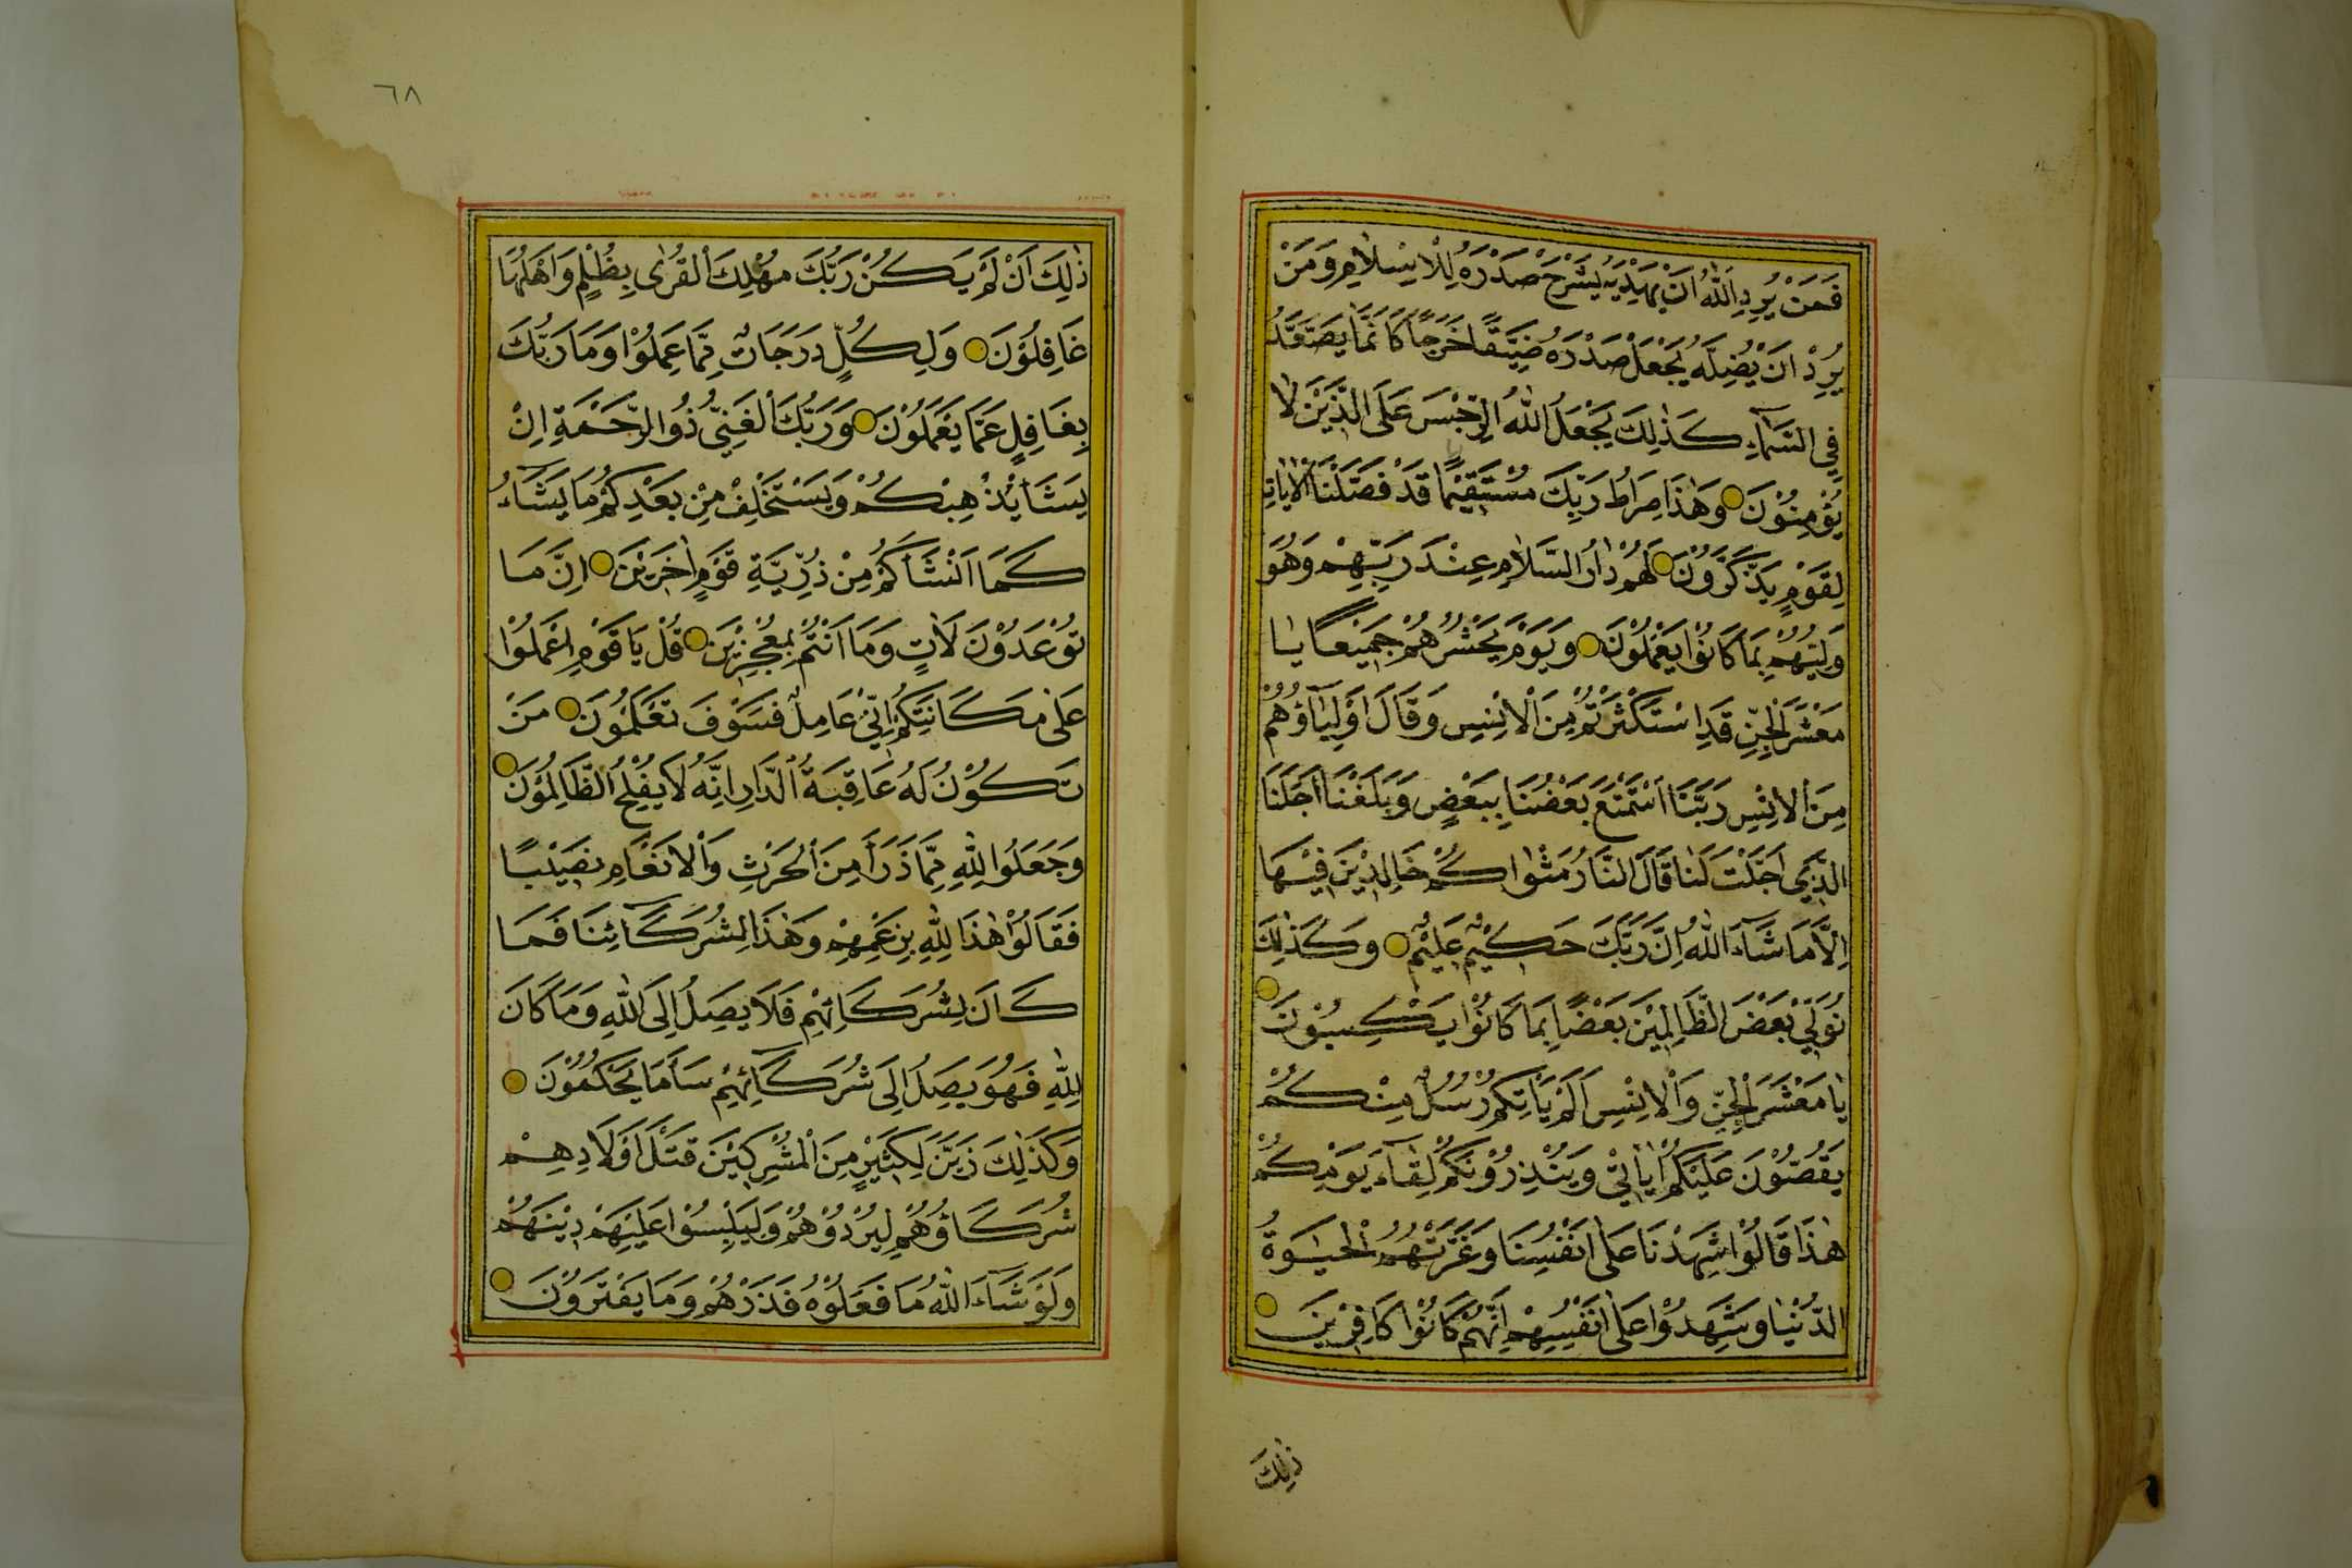 فَمَنْ يُرِدِ اللّٰهُ اَنْ يَهْدِيَهُ يَشْرَحْ صَدْرَهُ لِلْاِسْلَامِ وَمَنْ
يُرِدْ اَنْ يُضِلَّهُ يَجْعَلْ صَدْرَهُ ضَيِّقًا حَرَجًا كَاَنَّمَا يَصَّعَّدُ
فِي السَّمَآءِ كَذٰلِكَ يَجْعَلُ اللّٰهُ الرِّجْسَ عَلَى الَّذِيْنَ لَا
يُؤْمِنُوْنَ وَهٰذَا صِرَاطُ رَبِّكَ مُسْتَقِيْمًا قَدْ فَصَّلْنَا الْاٰيَاتِ
لِقَوْمٍ يَذَّكَّرُوْنَ لَهُمْ دَارُ السَّلَامِ عِنْدَ رَبِّهِمْ وَهُوَ
وَلِيُّهُمْ بِمَا كَانُوْا يَعْمَلُوْنَ وَيَوْمَ يَحْشُرُهُمْ جَمِيْعًا يَا
مَعْشَرَ الْجِنِّ قَدِ اسْتَكْثَرْتُمْ مِنَ الْاِنْسِ وَقَالَ اَوْلِيَآؤُهُمْ
مِنَ الْاِنْسِ رَبَّنَا اسْتَمْتَعَ بَعْضُنَا بِبَعْضٍ وَبَلَغْنَا اَجَلَنَا
الَّذِي اَجَّلْتَ لَنَا قَالَ النَّارُ مَثْوٰاكُمْ خَالِدِيْنَ فِيْهَا
اِلَّا مَا شَآءَ اللّٰهُ اِنَّ رَبَّكَ حَكِيْمٌ عَلِيْمٌ وَكَذٰلِكَ
نُوَلِّيْ بَعْضَ الظَّالِمِيْنَ بَعْضًا بِمَا كَانُوْا يَكْسِبُوْنَ
يَا مَعْشَرَ الْجِنِّ وَالْاِنْسِ اَلَمْ يَاْتِكُمْ رُسُلٌ مِنْكُمْ
يَقُصُّوْنَ عَلَيْكُمْ اٰيَاتِيْ وَيُنْذِرُوْنَكُمْ لِقَآءَ يَوْمِكُمْ
هٰذَا قَالُوْا شَهِدْنَا عَلٰى اَنْفُسِنَا وَغَرَّتْهُمُ الْحَيٰوةُ
الدُّنْيَا وَشَهِدُوْا عَلٰى اَنْفُسِهِمْ اَنَّهُمْ كَانُوْا كَافِرِيْنَ
ذٰلِكَ
٦٨
ذٰلِكَ اَنْ لَمْ يَكُنْ رَبُّكَ مُهْلِكَ الْقُرٰى بِظُلْمٍ وَاَهْلُهَا
غَافِلُوْنَ وَلِكُلٍّ دَرَجَاتٌ مِمَّا عَمِلُوْا وَمَا رَبُّكَ
بِغَافِلٍ عَمَّا يَعْمَلُوْنَ وَرَبُّكَ الْغَنِيُّ ذُو الرَّحْمَةِ اِنْ
يَشَاْ يُذْهِبْكُمْ وَيَسْتَخْلِفْ مِنْ بَعْدِكُمْ مَا يَشَآءُ
كَمَا اَنْشَاَكُمْ مِنْ ذُرِّيَّةِ قَوْمٍ اٰخَرِيْنَ اِنَّ مَا
تُوْعَدُوْنَ لَاٰتٍ وَمَا اَنْتُمْ بِمُعْجِزِيْنَ قُلْ يَا قَوْمِ اعْمَلُوْا
عَلٰى مَكَانَتِكُمْ اِنِّيْ عَامِلٌ فَسَوْفَ تَعْلَمُوْنَ مَنْ
تَكُوْنُ لَهُ عَاقِبَةُ الدَّارِ اِنَّهُ لَا يُفْلِحُ الظَّالِمُوْنَ
وَجَعَلُوا لِلّٰهِ مِمَّا ذَرَاَ مِنَ الْحَرْثِ وَالْاَنْعَامِ نَصِيْبًا
فَقَالُوْا هٰذَا لِلّٰهِ بِزَعْمِهِمْ وَهٰذَا لِشُرَكَآئِنَا فَمَا
كَانَ لِشُرَكَائِهِمْ فَلَا يَصِلُ اِلَى اللّٰهِ وَمَا كَانَ
لِلّٰهِ فَهُوَ يَصِلُ اِلَى شُرَكَآئِهِمْ سَآءَ مَا يَحْكُمُوْنَ
وَكَذٰلِكَ زَيَّنَ لِكَثِيْرٍ مِنَ الْمُشْرِكِيْنَ قَتْلَ اَوْلَادِهِمْ
شُرَكَاؤُهُمْ لِيُرْدُوْهُمْ وَلِيَلْبِسُوْا عَلَيْهِمْ دِيْنَهُمْ
وَلَوْ شَآءَ اللّٰهُ مَا فَعَلُوْهُ فَذَرْهُمْ وَمَا يَفْتَرُوْنَ